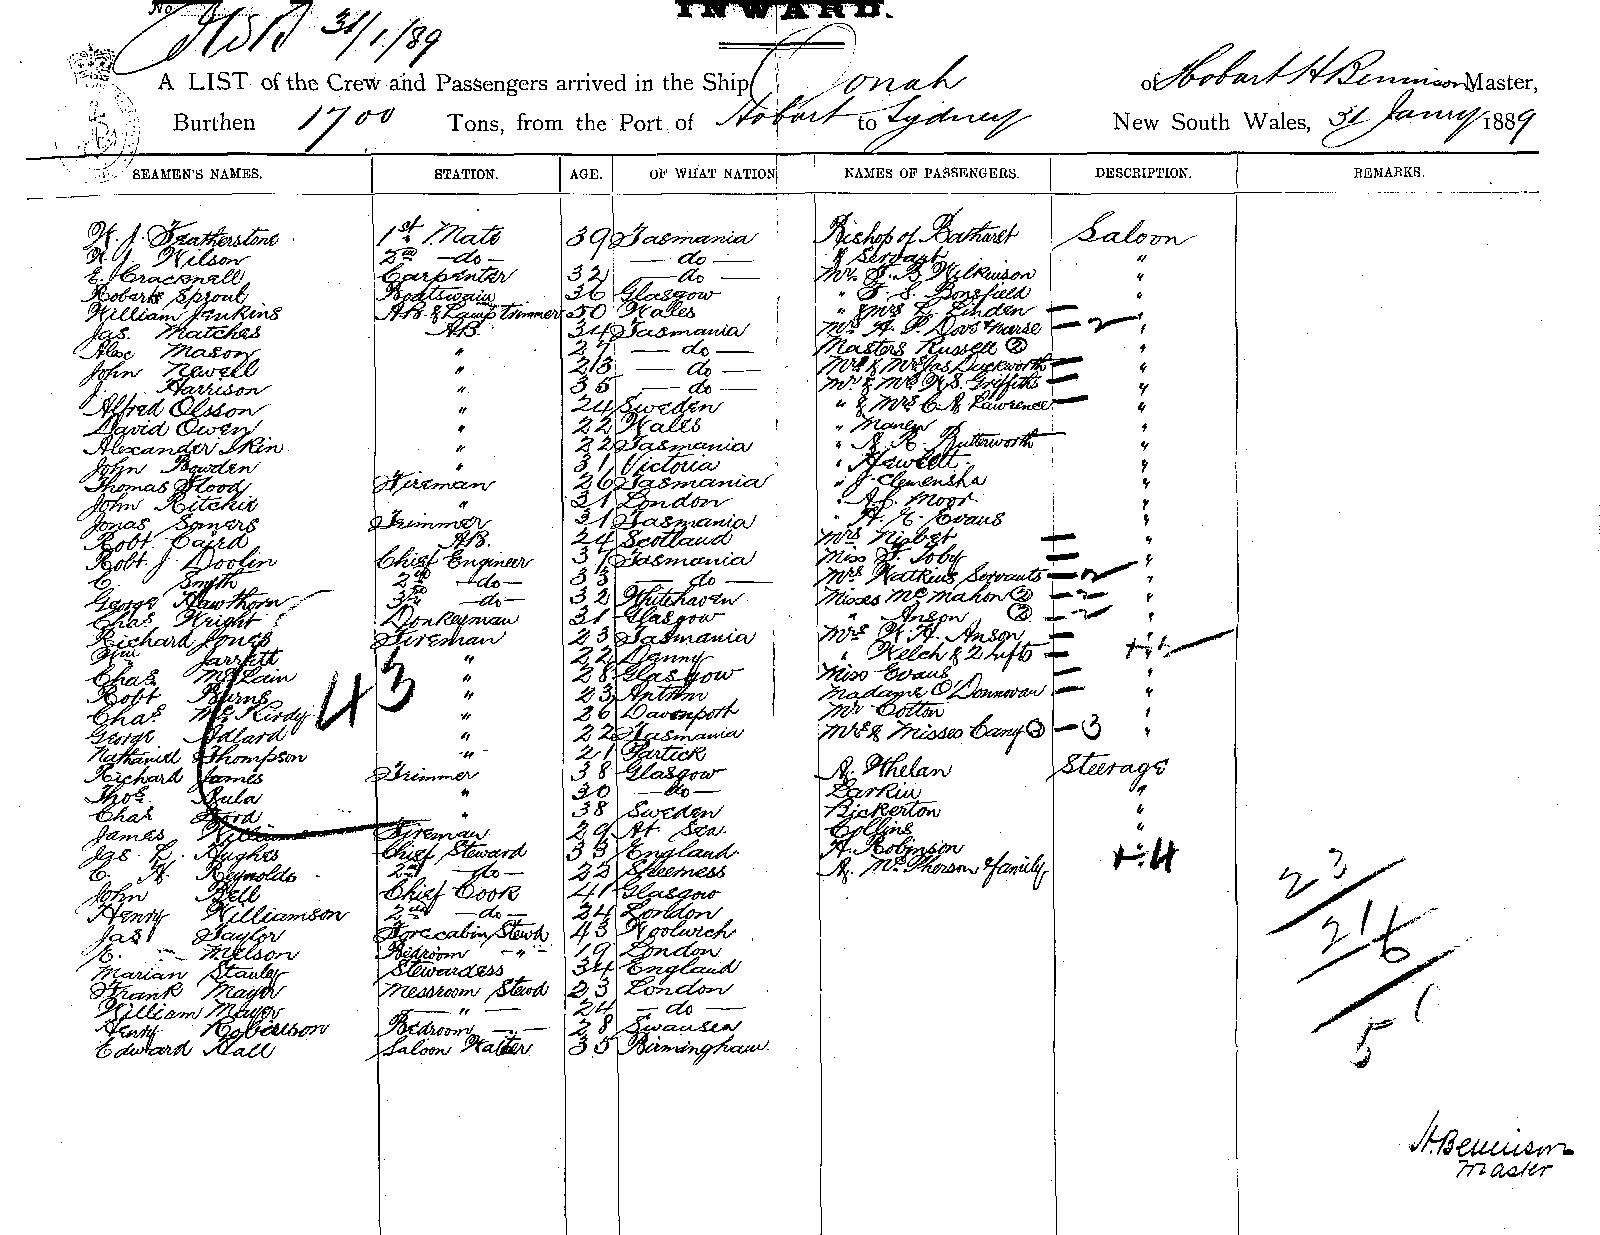 No
31/1/89
INWARD.
A LIST of the Crew and Passengers arrived in the Ship Oonah of Hobart H Bennison Master,
Burthen 1700 Tons, from the Port of Hobart to Sydney New South Wales, 31 Janry 1889
SEAMEN'S NAMES. STATION. AGE. OF WHAT NATION NAMES OF PASSENGERS. DESCRIPTION. REMARKS.
W. J. Featherstone 1st Mate 39 Tasmania Bishop of Bathurst Saloon
W. J. Wilson 2nd - do - — do — & Servant "
E. Cracknell Carpenter 32 — do — Mr. F. B. Wilkinson "
Robert Sproul Boatswain 36 Glasgow " F. S. Bousfield "
William Jenkins AB & Lamp trimmer 50 Wales " & Mrs L. Linden — "
Jas. Matches AB. 34 Tasmania Mrs A. P. & nurse — 2 "
Alex Mason " 27 — do — Masters Russell ② "
John Newell " 23 — do — Mr & Mrs Jas Duckworth — "
J. Harrison " 35 — do — Mr & Mrs W. S. Griffiths — "
Alfred Olsson " 24 Sweden " & Mrs C. A. Lawrence — "
David Owen " 22 Wales " "
Alexander Skin " 22 Tasmania " A. R. Butterworth "
John Bowden " 31 Victoria " Hewlett "
Thomas Flood Fireman 26 Tasmania " J. Clemensha "
John Ritchie " 21 London " Moor "
Jonas Somers Trimmer 31 Tasmania " H. E. Evans "
Robt Caird AB. 24 Scotland Mrs Nisbet — "
Robt J Doolin Chief Engineer 37 Tasmania Miss F. Toby — "
C. Smith 2nd - do - 33 — do — Mrs Watkins Servants — 2 "
George Hawthorn 3rd - do - 32 Whitehaven Misses McMahon ② — 2 "
Chas Wright Donkeyman 31 Glasgow " Anson ② — 2 "
Richard Jones Fireman 23 Tasmania Mrs W. H. Anson — "
Wm Jarrett " 22 Denny " Welch & 2 Lifts —
Chas McLain " 28 Glasgow Miss Evans — "
Robt Burns " 23 Antrim Madame O'Donnovan — "
Chas McKirdy " 26 Davenport Mr Cotton "
George Adlard " 22 Tasmania Mrs & Misses Cany ③ — 3 "
Nathaniel Thompson " 21 Partick
Richard James Trimmer 38 Glasgow A. Whelan Steerage
Thos. Rula " 30 — do — Larkin "
Chas Ford " 38 Sweden Bickerton "
James Williams Fireman 29 At Sea Collins "
Jas. L. Hughes Chief Steward 33 England H. Robinson
C. H. Reynolds 2nd - do - 22 Sheerness A. McPherson & family +4
John Bell Chief Cook 41 Glasgow
Henry Williamson 2nd - do - 24 London
Jas Taylor Forecabin Stewd 43 Woolwich
E. Melson Bedroom " 19 London
Marian Stanley Stewardess 34 England
Frank Mayor Messroom Stewd 23 London
William Mayor — " — 24 — do —
Henry Robertson Bedroom — " — 28 Swansea
Edward Hall Saloon Waiter 35 Birmingham
43
23
21
6
51
H. Bennison
Master